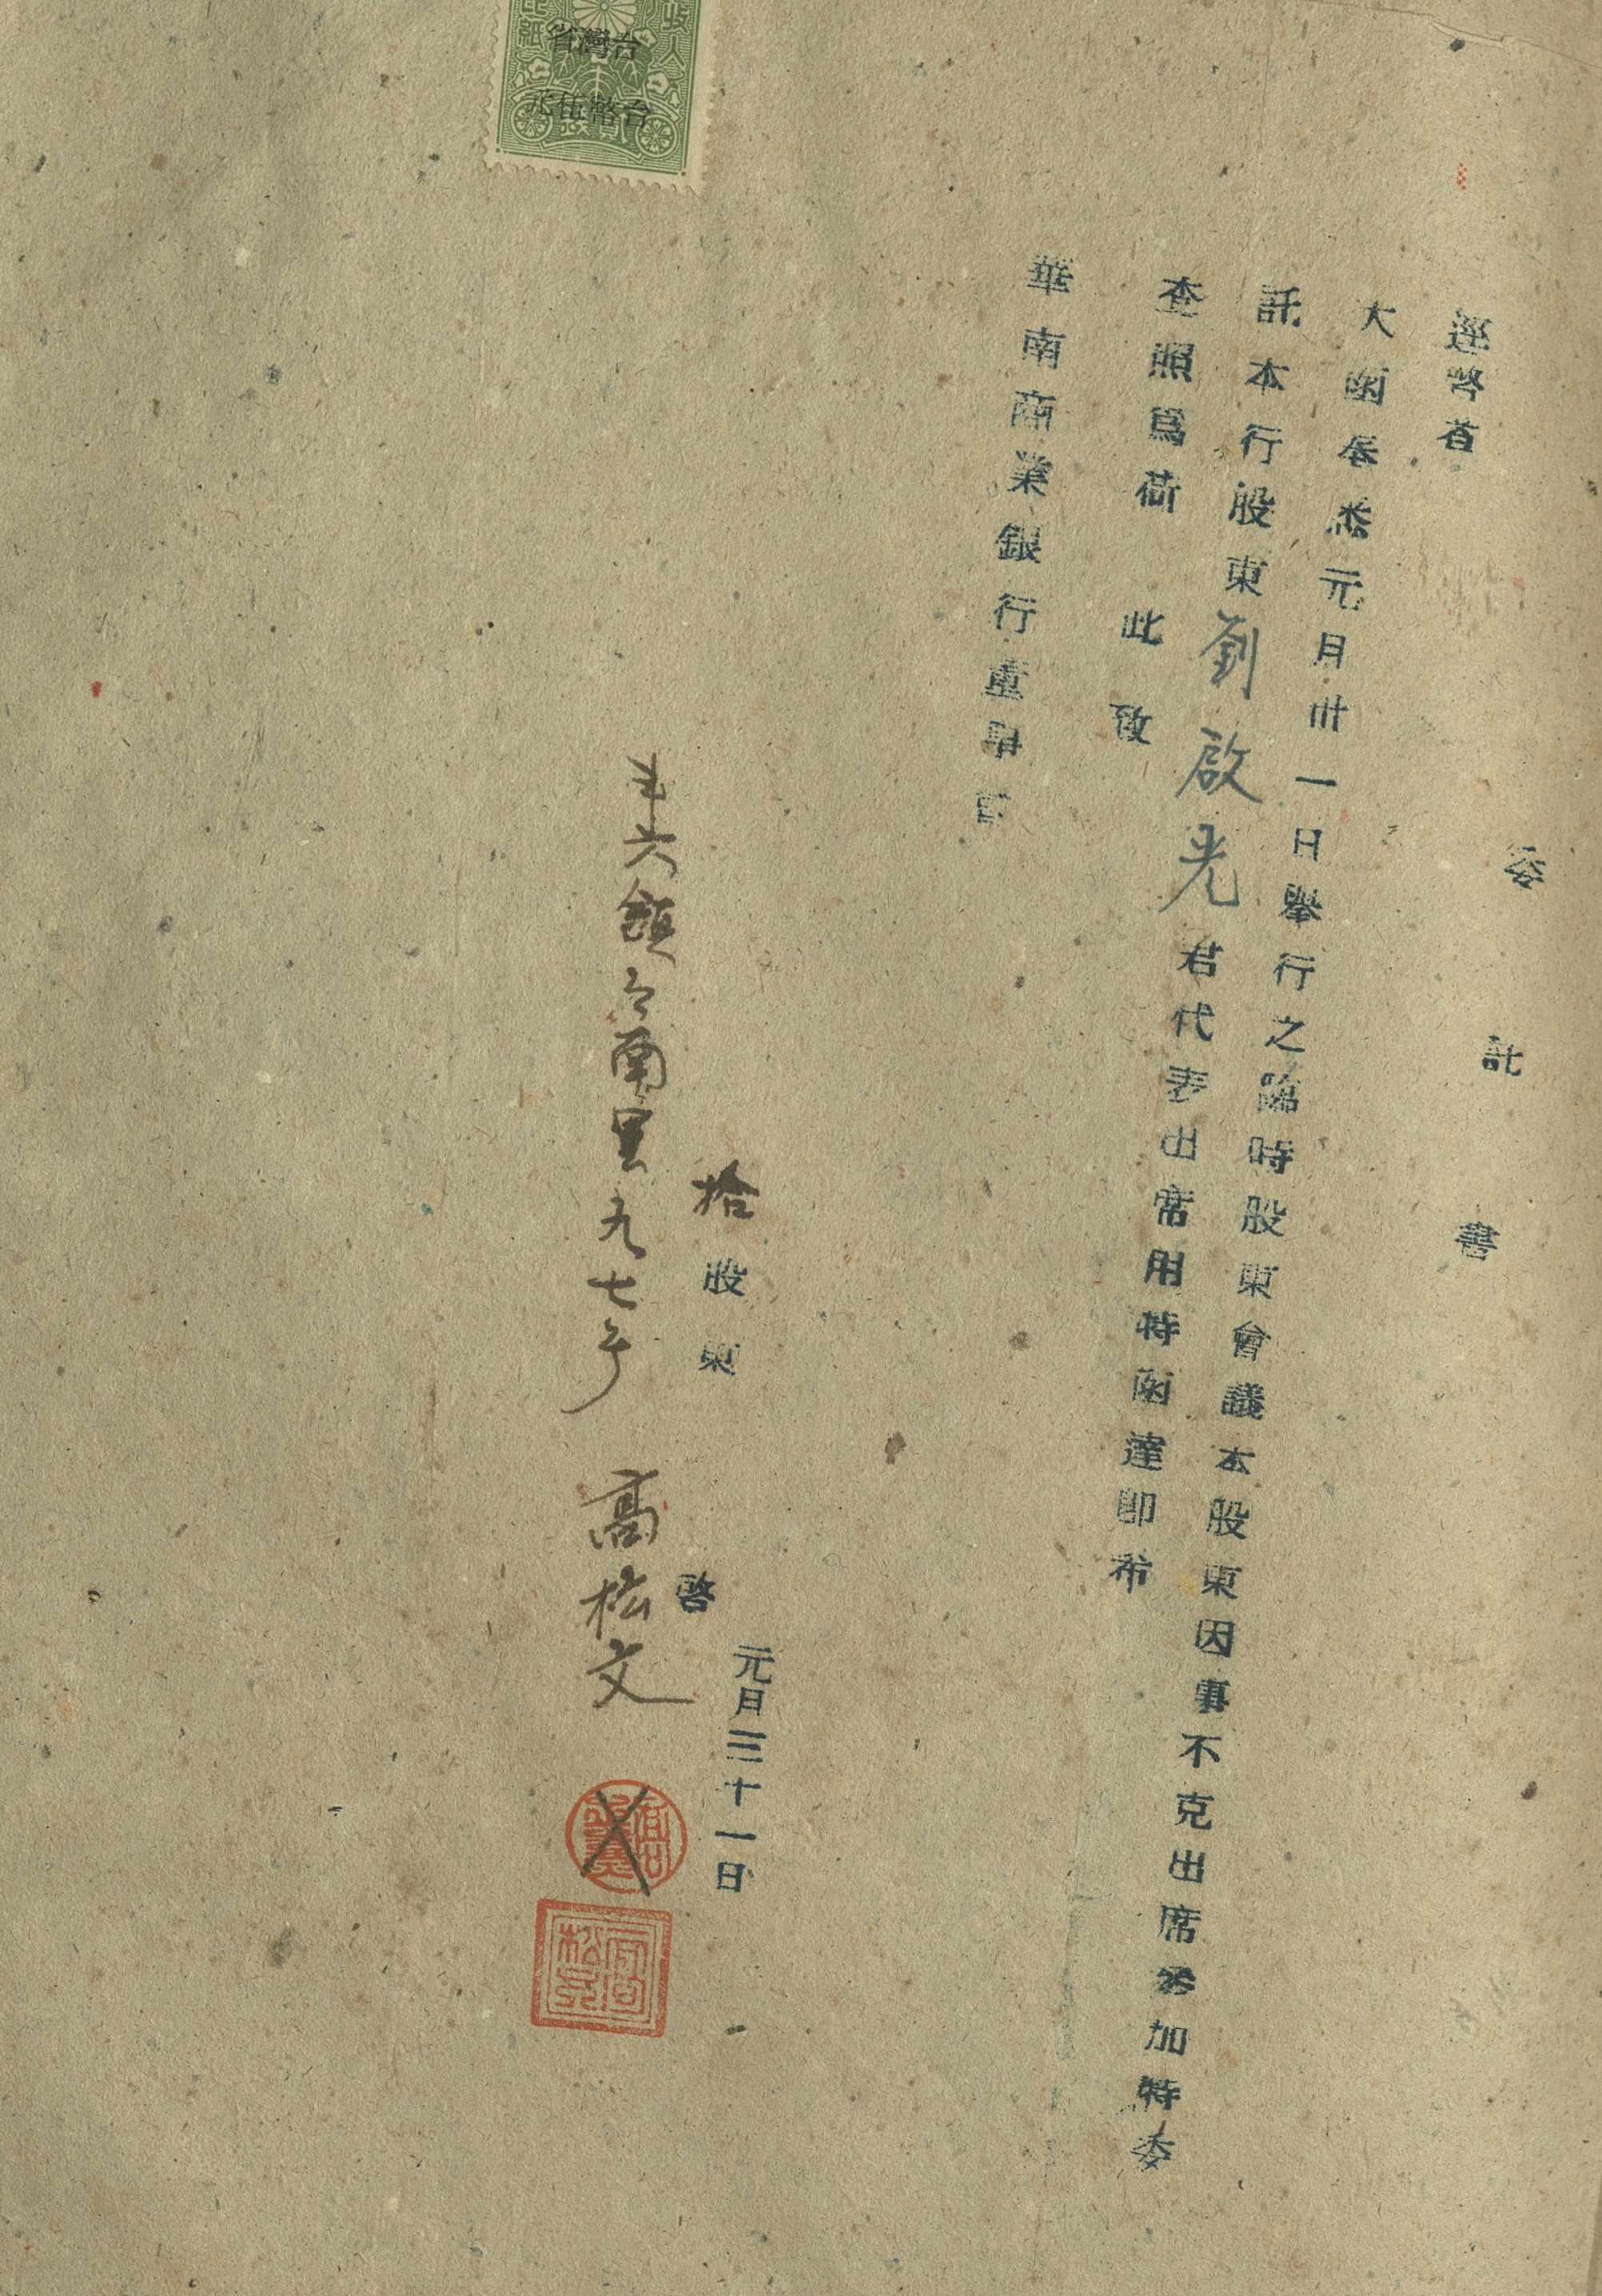 委託書
逕啓者
大函奉悉元月卅一日舉行之臨時股東會議本股東因事不克出席參加特委
託本行股東劉啟光君代表出席用特函達即布
查照爲荷　此致
華南商業銀行董事會
拾股東
啓
元月三十一日
斗六鎮今南里九七号　高松文
收入印紙
台灣省
台幣伍元